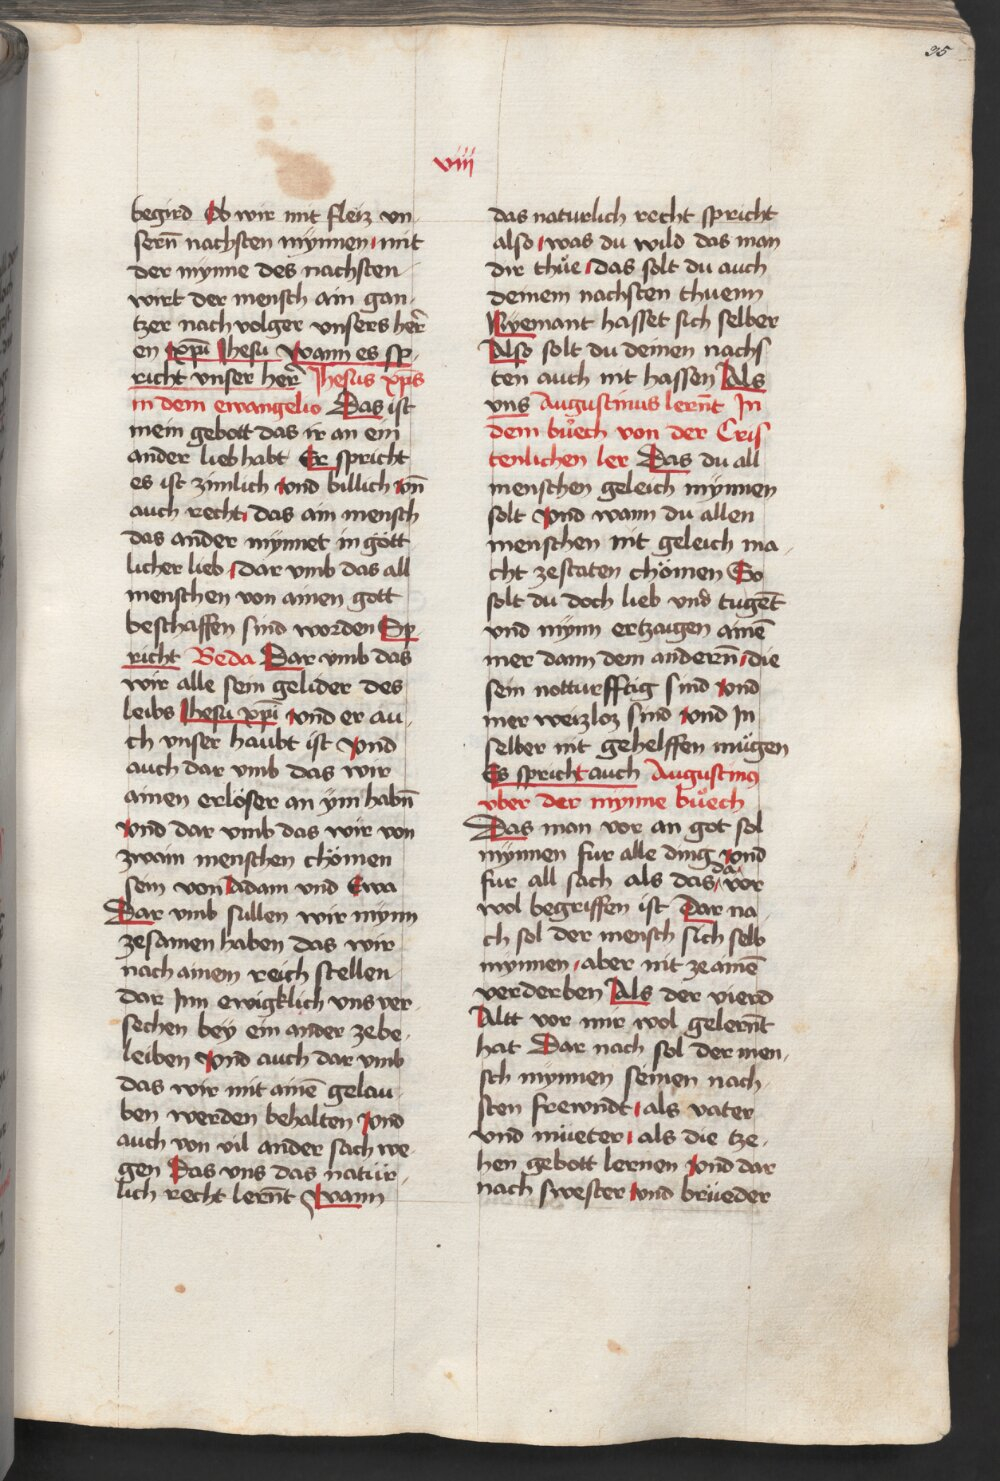 95
viii
begird Ob wir mit fleiz vn
sern̄ nachsten mÿnnen mit
der mÿnne des nachsten
wirt der mensch ain gan
tzer nachvolger vnsers her̄
en xp̄i Jhesu Wann es sp
richt vnser her̄ Jhesus xp̄s
in dem ewangelio Das ist
mein gebott das ir an ein
ander lieb habt Er spricht
es ist zimlich vnd billich vn̄
auch recht das ain mensch
das ander mÿnnet in gött
licher lieb dar vmb das all
menschen von ainen gott
beschaffen sind worden Sp
richt Beda Dar vmb das
wir alle sein gelider des
leibs Jhesu xp̄i vnd er au
ch vnser haubt ist vnd
auch dar vmb das wir
ainen erlöser an ÿm habn̄
vnd dar vmb das wir von
zwain menschen chömen
sein von Adam vnd Ewa
Dar vmb sullen wir mÿnn
zesamen haben das wir
nach ainem reich stellen
dar Jnn ewigklich vns ver
sechen beÿ ein ander zebe
leiben vnd auch dar vmb
das wir mit ainē gelau
ben werden behalten vnd
auch von vil ander sach we
gen Das vns das natür
lich recht lernt Wann
das naturlich recht spricht
also was du wild das man
dir thüe das solt du auch
deinem nachsten thuenn
Nÿemant hasset sich selber
Also solt du deinen nachs
ten auch nit hassen Als
vns Augustinus lern̄t Jn
dem bůech von der Cris
tenlichen ler Das du all
menschen geleich mÿnnen
solt Vnd wann du allen
menschen nit geleich ma
cht zestaten chömen So
solt du doch lieb vnd tugēt
vnd mÿnn ertzaigen ainē
mer dann dem andern̄ die
sein notturfftig sind vnd
mer weizloz sind vnd Jn
selber nit gehelffen mügen
Es spricht auch Augustinus
vber der mÿnne bůech
Das man vor an got sol
mÿnnen fur alle ding vnd
fur all sach als das da vor
wol begriffen ist Dar na
ch sol der mensch sich selb
mÿnnen aber nit ze ainē
verderben Als der vierd
Altt vor mir wol gelern̄t
hat Dar nach sol der men
sch mÿnnen seinen nach
sten frewndt als vater
vnd müeter als die tze
hen gebott lernen vnd dar
nach swester vnd brüeder